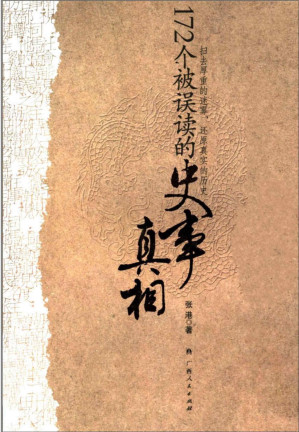 扫去厚重的迷雾，还原真实的历史
172个被误读的
史事
真相
张港 著
广西人民出版社